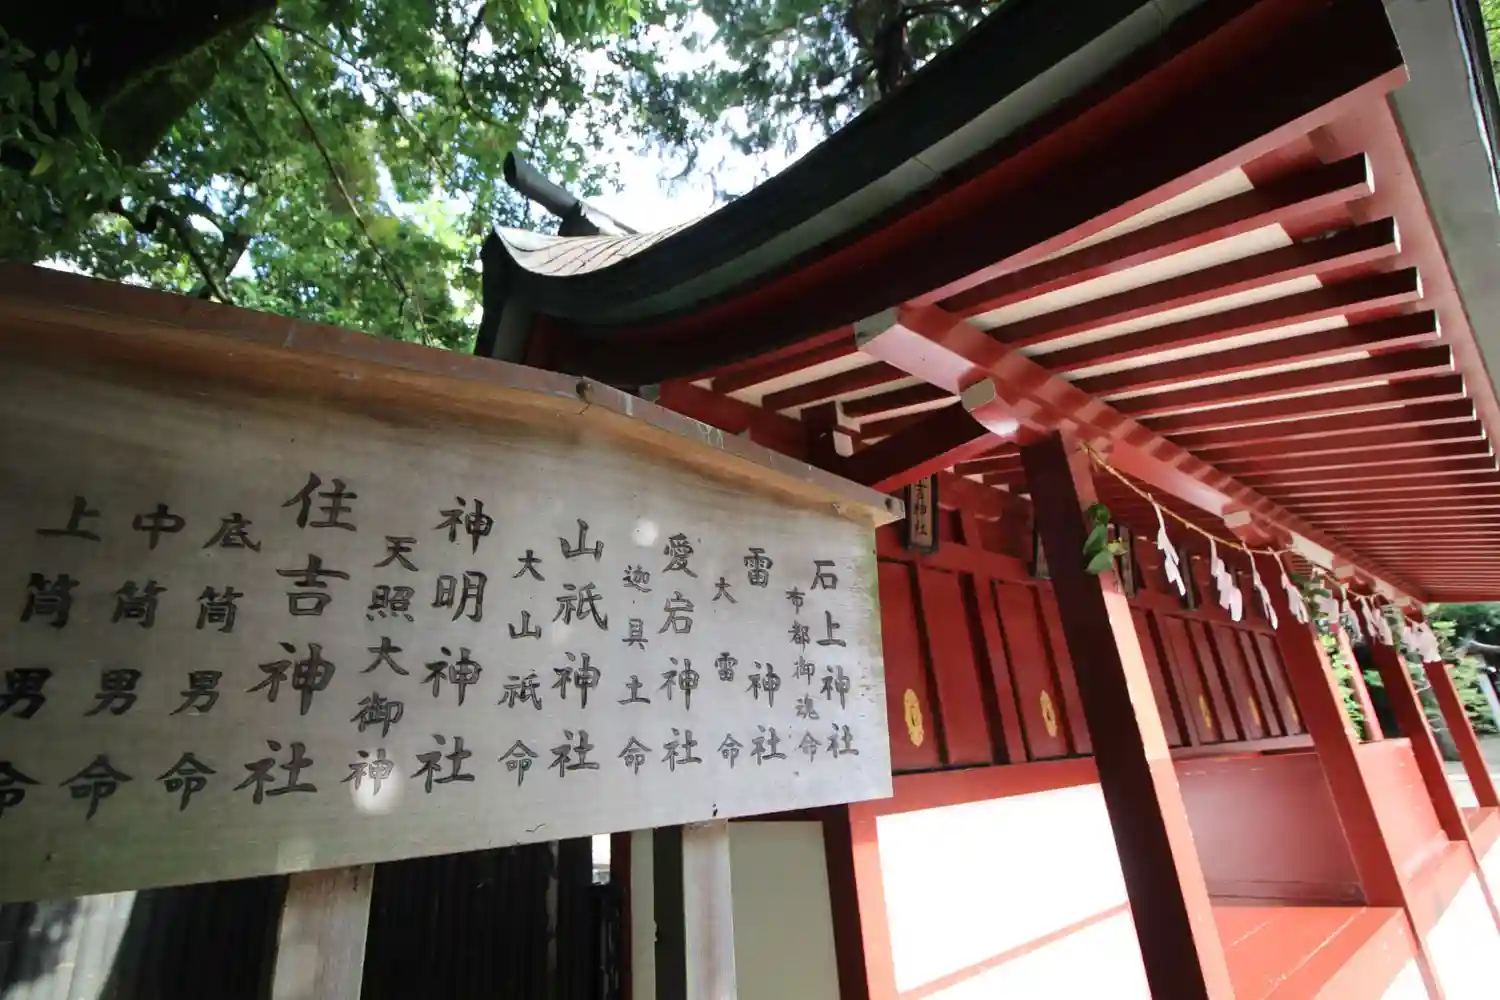 石上神社
布都御魂命
雷神社
大雷命
愛宕神社
迦具土命
山祇神社
大山祇命
神明神社
天照大御神
住吉神社
底筒男命
中筒男命
上筒男命
吉神社